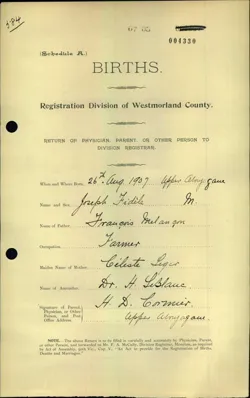 594
004330
(Schedule A.)
BIRTHS.
Registration Division of Westmorland County.
RETURN OF PHYSICIAN, PARENT, OR OTHER PERSON TO
DIVISION REGISTRAR.
When and Where Born, 26th Aug. 1907 Upper Aboujagane
Name and Sex, Joseph Fidèle M.
Name of Father, François Melançon
Occupation, Farmer
Maiden Name of Mother, Céleste Leger
Name of Accoucheur, Dr. H. LeBlanc
Signature of Parent, Physician, or Other Person, and Post Office Address, H. D. Cormier,
Upper Aboujagane.
NOTE.—The above Return is to be filled in carefully and accurately by Physician, Parent,
or other Person, and forwarded to Mr. F. A. McCully, Division Registrar, Moncton, as required
by Act of Assembly, 50th Vic., Cap. 5, "An Act to provide for the Registration of Births,
Deaths and Marriages."